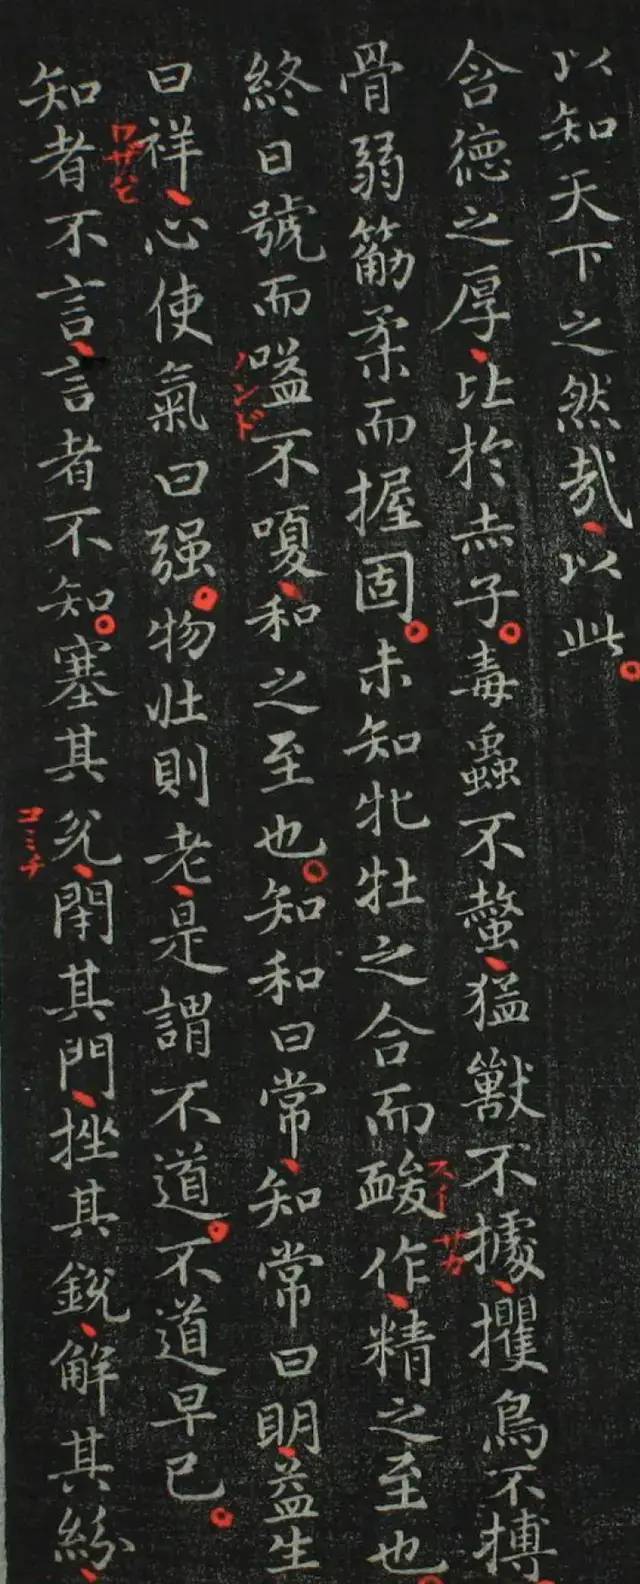 以知天下之然哉、以此。
含德之厚、比於赤子。毒蟲不螫、猛獸不據、攫鳥不搏。
骨弱筋柔而握固。未知牝牡之合而酸作、精之至也。
スイ
サカ
終日號而嗌不嗄、和之至也。知和曰常、知常曰明、益生
ノンド
曰祥、心使氣曰强。物壯則老、是謂不道。不道早已。
知者不言、言者不知。塞其兊、閇其門、挫其銳、解其紛、
コミチ